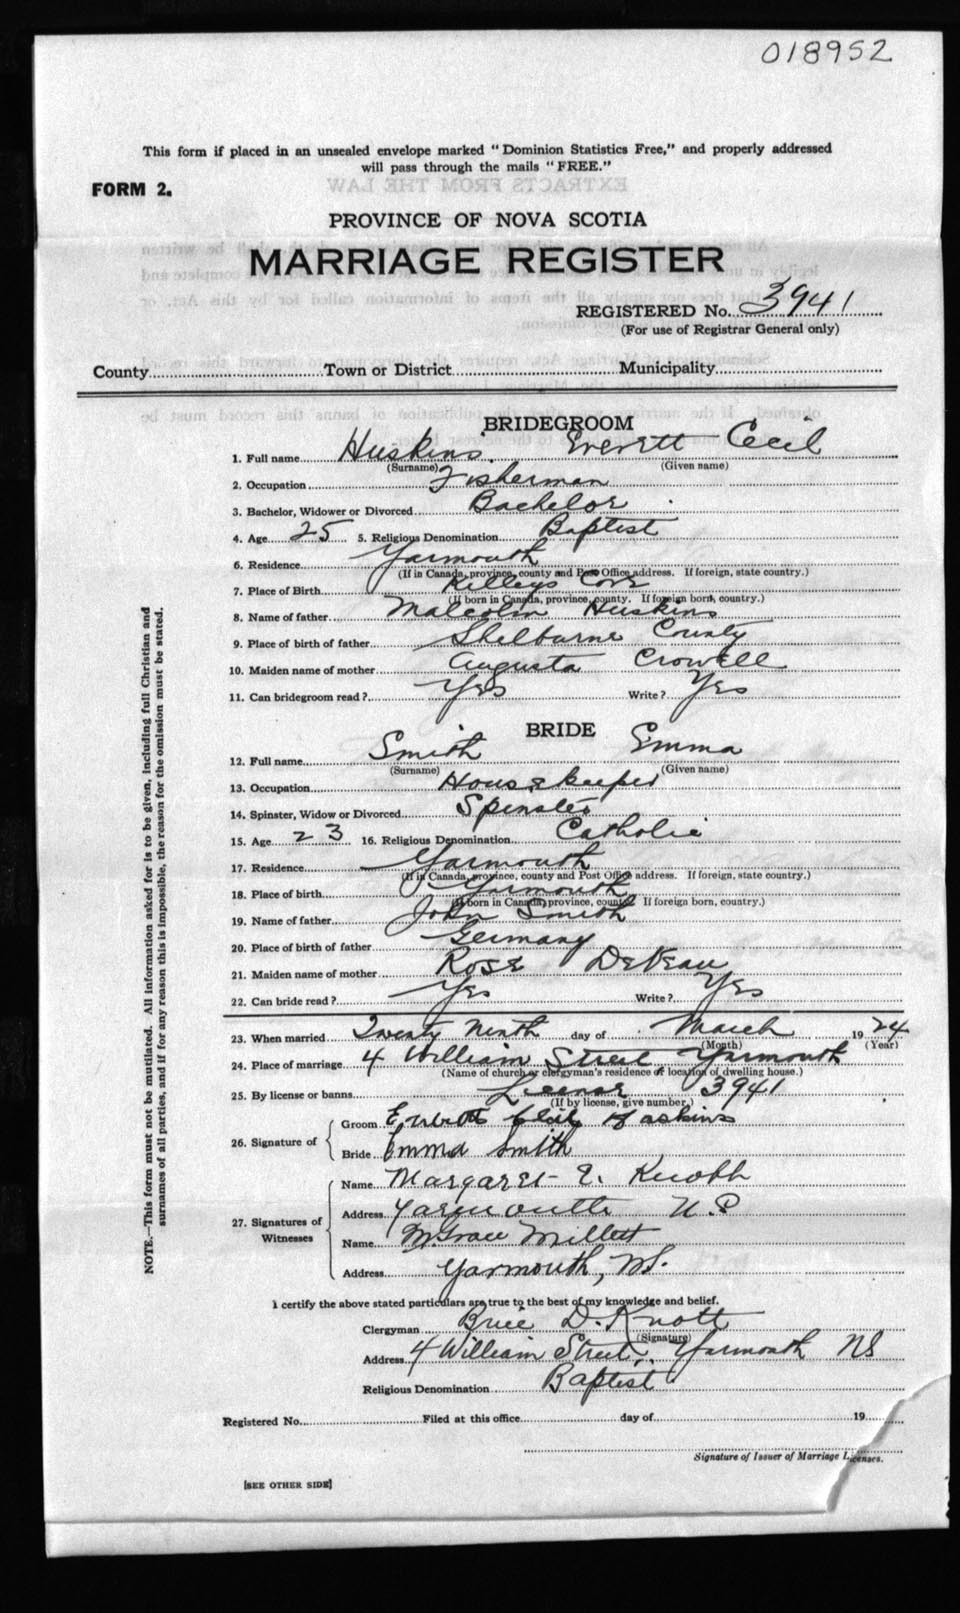 018952
This form if placed in an unsealed envelope marked "Dominion Statistics Free," and properly addressed
will pass through the mails "FREE."
FORM 2.
PROVINCE OF NOVA SCOTIA
MARRIAGE REGISTER
REGISTERED No. 3941
(For use of Registrar General only)
County Town or District Municipality
BRIDEGROOM
1. Full name Huskins Everett Cecil
(Surname) (Given name)
2. Occupation Fisherman
3. Bachelor, Widower or Divorced Bachelor
4. Age 25 5. Religious Denomination Baptist
6. Residence Yarmouth
(If in Canada, province, county and Post Office address. If foreign, state country.)
7. Place of Birth Kelleys Cove
(If born in Canada, province, county. If foreign born, country.)
8. Name of father Malcolm Huskins
9. Place of birth of father Shelburne County
10. Maiden name of mother Augusta Crowell
11. Can bridegroom read? Yes Write? Yes
BRIDE
12. Full name Smith Emma
(Surname) (Given name)
13. Occupation Housekeeper
14. Spinster, Widow or Divorced Spinster
15. Age 23 16. Religious Denomination Catholic
17. Residence Yarmouth
(If in Canada, province, county and Post Office address. If foreign, state country.)
18. Place of birth Yarmouth
(If born in Canada, province, county. If foreign born, country.)
19. Name of father John Smith
20. Place of birth of father Germany
21. Maiden name of mother Rose DeVeau
22. Can bride read? Yes Write? Yes
23. When married Twenty Ninth day of March 1924
(Month) (Year)
24. Place of marriage 4 William Street Yarmouth
(Name of church or clergyman's residence or location of dwelling house.)
25. By license or banns License 3941
(If by license, give number.)
26. Signature of
Groom Huskins
Bride Emma Smith
27. Signatures of Witnesses
Name Margaret E. Knott
Address Yarmouth N.S
Name M. Grace Millett
Address Yarmouth, N.S.
I certify the above stated particulars are true to the best of my knowledge and belief.
Clergyman Brice D. Knott
(Signature)
Address 4 William Street, Yarmouth NS
Religious Denomination Baptist
Registered No. Filed at this office day of 19
Signature of Issuer of Marriage Licenses.
[SEE OTHER SIDE]
NOTE.—This form must not be mutilated. All information asked for is to be given, including full Christian and
surnames of all parties, and if for any reason this is impossible, the reason for the omission must be stated.